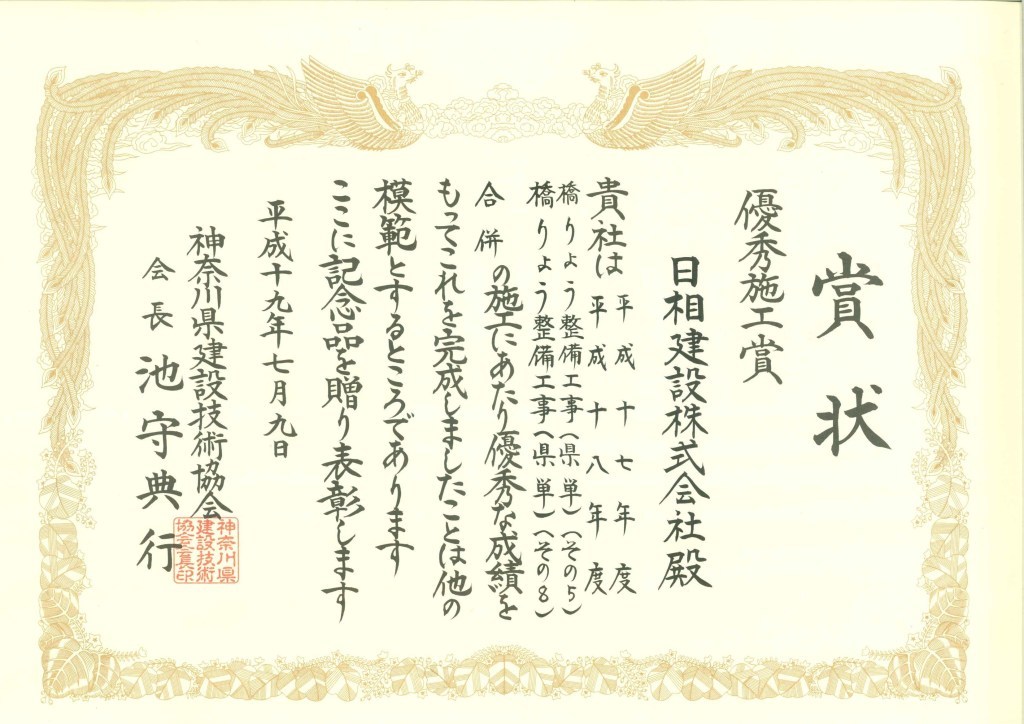 賞状
優秀施工賞
日相建設株式会社殿
貴社は平成十七年度
平成十八年度
橋りょう整備工事(県単)(その5)
橋りょう整備工事(県単)(その8)
合併の施工にあたり優秀な成績を
もってこれを完成しましたことは他の
模範とするところであります
ここに記念品を贈り表彰します
平成十九年七月九日
神奈川県建設技術協会
会長 池守典行
神奈川県
建設技術
協会会長印